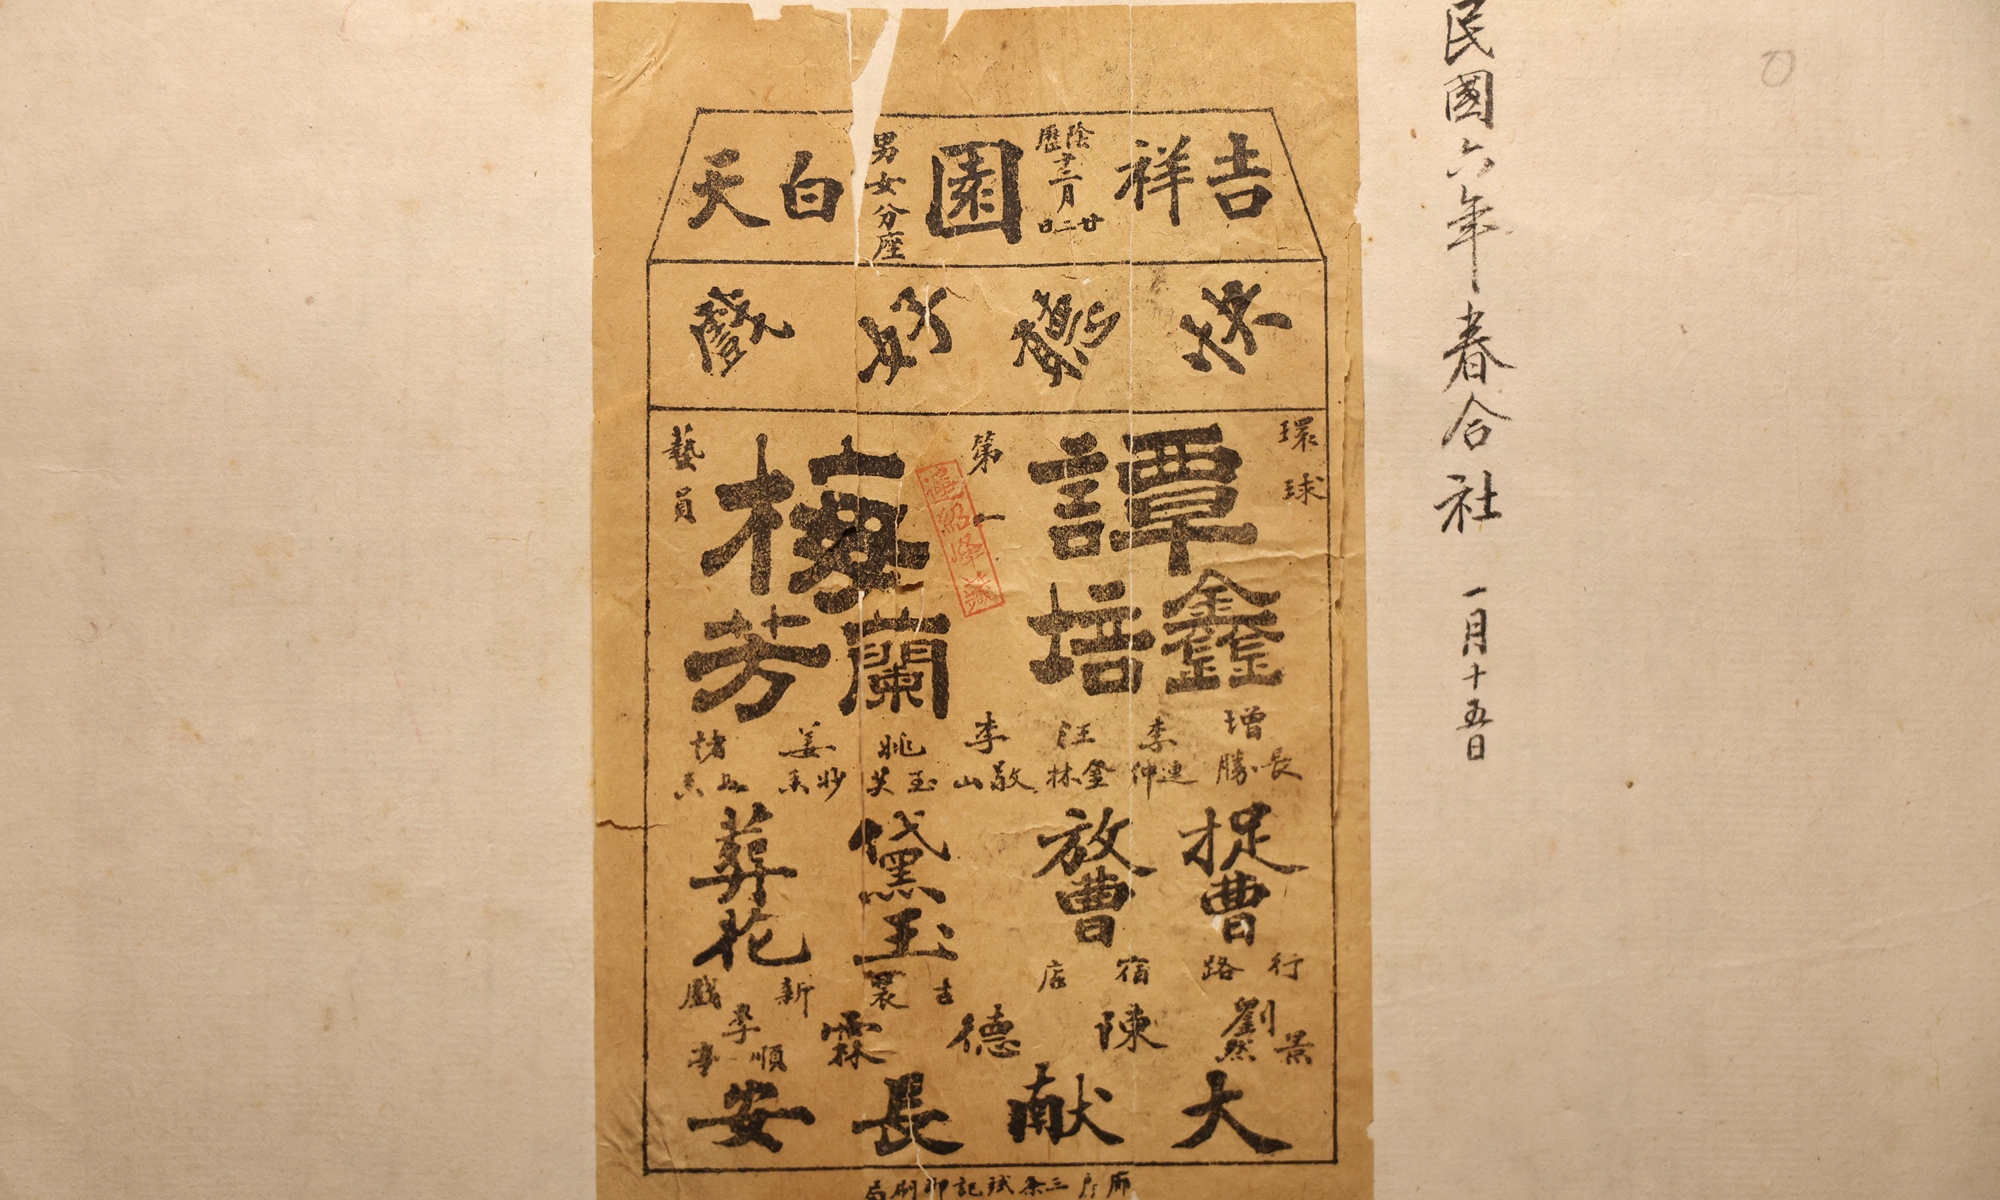 民國六年春合社 一月十五日
吉祥園
陰歷十二月廿二日
男女分座
白天
好戲
環球第一藝員
譚鑫培
梅蘭芳
增長勝
李連仲
汪金林
李敬山
姚玉芙
姜妙香
諸茹香
捉曹放曹
黛玉葬花
行路宿店
古裝新戲
劉景然
陳德霖
李順亭
大献長安